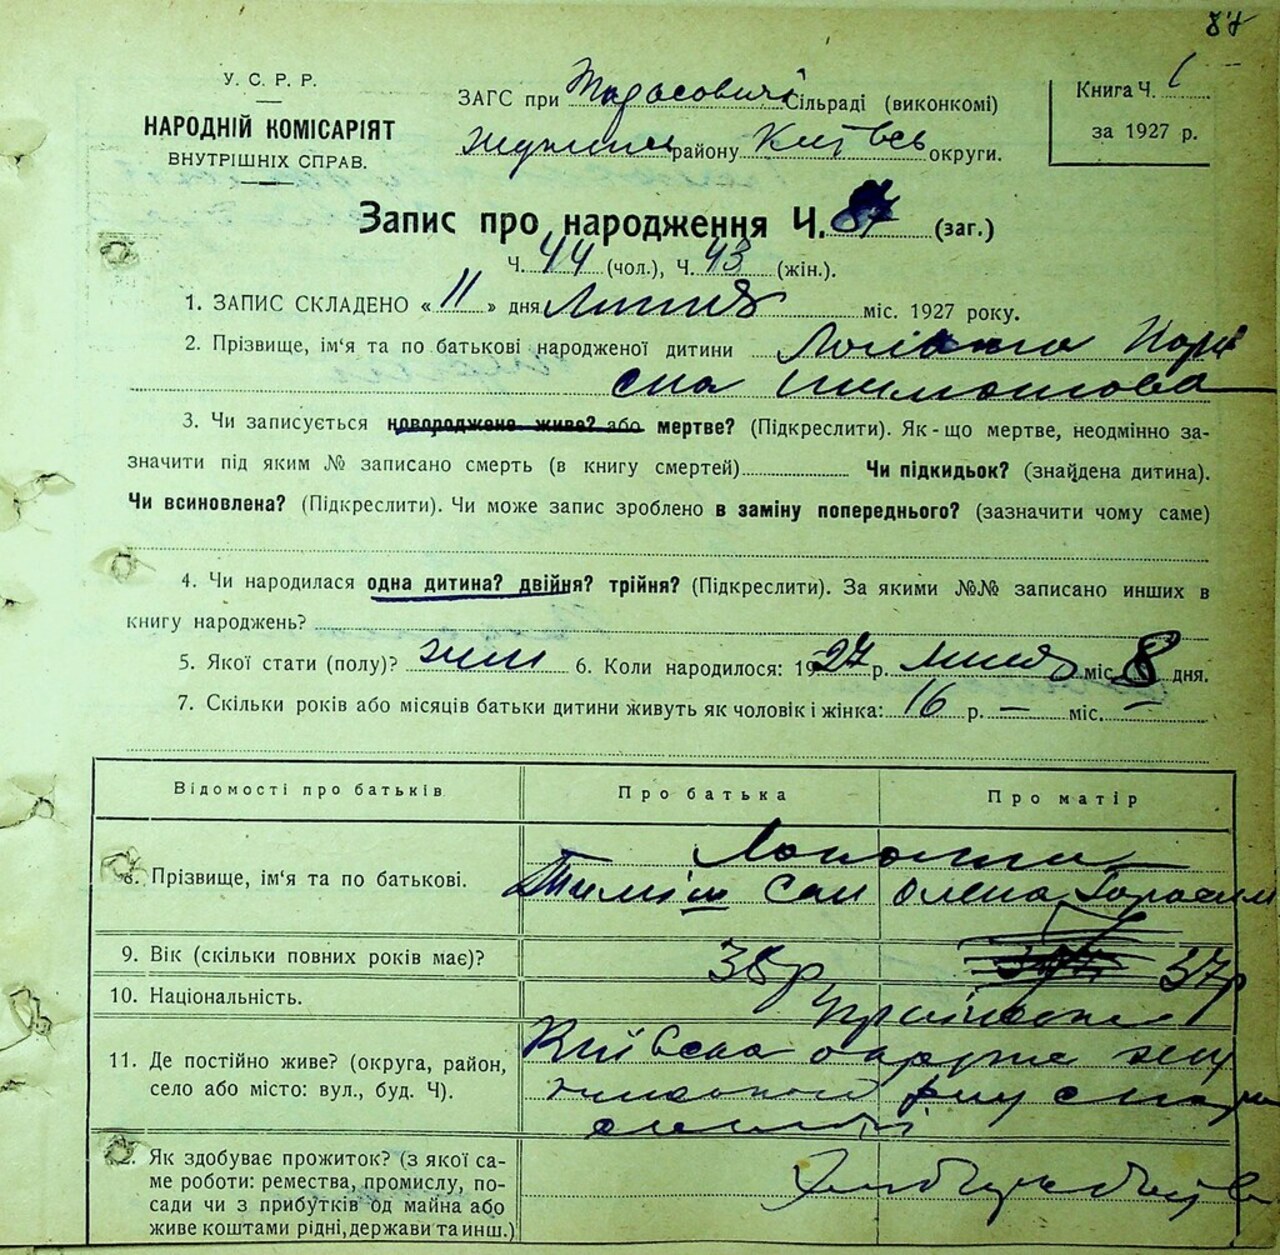 87
У. С. Р. Р.
НАРОДНІЙ КОМІСАРІЯТ
ВНУТРІШНІХ СПРАВ.
ЗАГС при Тарасовичі Сільраді (виконкомі)
району Київськ округи.
Книга Ч. 1
за 1927 р.
Запис про народження Ч. 87 (заг.)
Ч. 44 (чол.), Ч. 43 (жін.).
1. ЗАПИС СКЛАДЕНО « 11 » дня Липня міс. 1927 року.
2. Прізвище, ім'я та по батькові народженої дитини
3. Чи записується новороджене живе? або мертве? (Підкреслити). Як-що мертве, неодмінно за-
значити під яким № записано смерть (в книгу смертей) Чи підкидьок? (знайдена дитина).
Чи всиновлена? (Підкреслити). Чи може запис зроблено в заміну попереднього? (зазначити чому саме)
4. Чи народилася одна дитина? двійня? трійня? (Підкреслити). За якими №№ записано инших в
книгу народжень?
5. Якої стати (полу)? жін 6. Коли народилося: 1927 р. Липня міс. 8 дня.
7. Скільки років або місяців батьки дитини живуть як чоловік і жінка: 16 р. — міс. —
Відомості про батьків Про батька Про матір
8. Прізвище, ім'я та по батькові. Тиміш Сам Олена Гарасим
9. Вік (скільки повних років має)? 38р 37р
10. Національність.
11. Де постійно живе? (округа, район, Київська округа
село або місто: вул., буд. Ч).
12. Як здобуває прожиток? (з якої са-
ме роботи: ремества, промислу, по-
сади чи з прибутків од майна або
живе коштами рідні, держави та инш.)